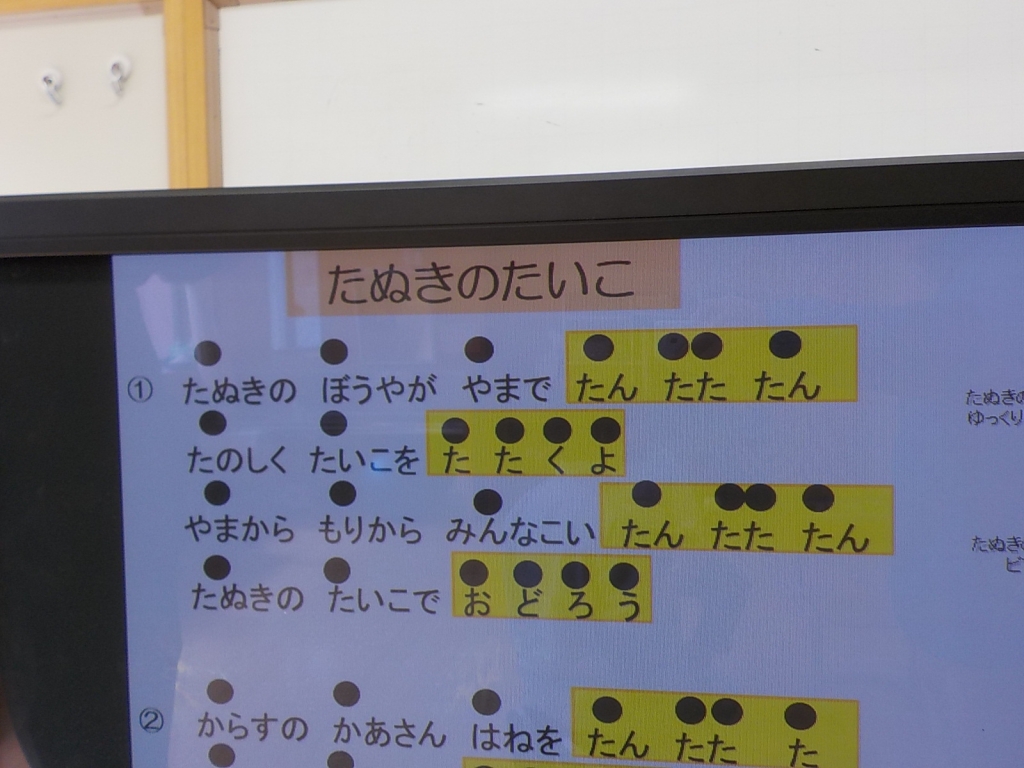 たぬきのたいこ
① たぬきの ぼうやが やまで たん たた たん
たのしく たいこを た た く よ
やまから もりから みんなこい たん たた たん
たぬきの たいこで お ど ろ う
② からすの かあさん はねを たん たた た
たぬきの
ゆっくり
たぬきの